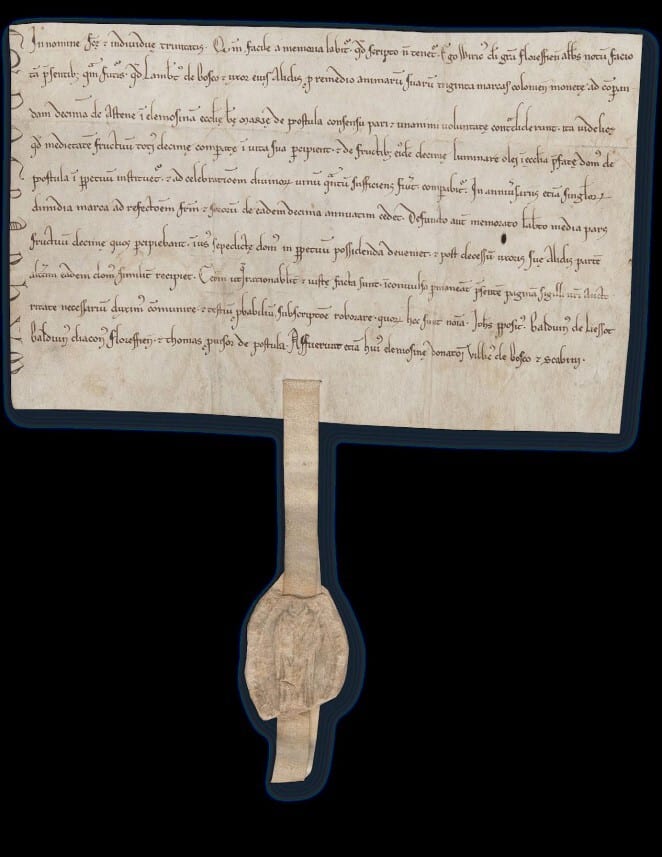 In nomine scē ⁊ individuę trinitatis. Qm̄ facile a memoria labit᷑ qd̄ scripto n̄ tenet᷑. Ego Wiric᷒ di gr̄a Floreffien̄ abbs notū facio
tā p̄sentib; q̄m futuris qd̄ Lamb̄t᷒ de bosco ⁊ uxor ei᷒ Alidis, ꝑ remedio animarū suarū triginta marcas colonien̄ monetę ad
dam decimā de Astene ī elemosinā ecclię bę MARIE de postula consensu pari ⁊ unanimi voluntate contulerunt. ita videlic;
qd̄ medietatē fructuū toti᷒ decime comparate ī vita sua ꝑcipient. ⁊ de fructib; ei᷒dē decime luminare olei ī ecclia p̄fate dom᷒ de
postula ī ꝑpetuum instituet᷑. ⁊ ad celebrationem divinoꝝ vinū sufficiens comparabit᷑. In anniv̄sariis etiā singloꝝ
dimidia marca ad refectōem fr̄m ⁊ soroꝝ de eadem decima annuatim cedet. Defuncto aut̄ memorato Lab̄to media pars
fructuū decime quos ꝑcipiebant ī us᷒ sepedictę dom᷒ in ꝑpetuum possidenda deveniet. ⁊ post decessū uxoris suę Alidis partē
alterā eadem dom᷒ similit̄ recipiet. Ut aūt rationabilit̄ ⁊ iuste facta sunt. īconvulsa ꝑmaneāt p̄sentē paginā sigilli nr̄i aucto
ritate necessariū duxim᷒ cōmunire. ⁊ testiū ꝓbabiliū subscriptōe roborare. quoꝝ hec sunt noīa. Joh̄s p̄posit᷒. Balduin᷒ de Liessot
balduin᷒ diacon᷒ Floreffien̄. ⁊ thomas ꝓvisor de postula. Affuerunt etiā hui᷒ elemosinę donatōi Willm᷒ de bosco ⁊ scabini.